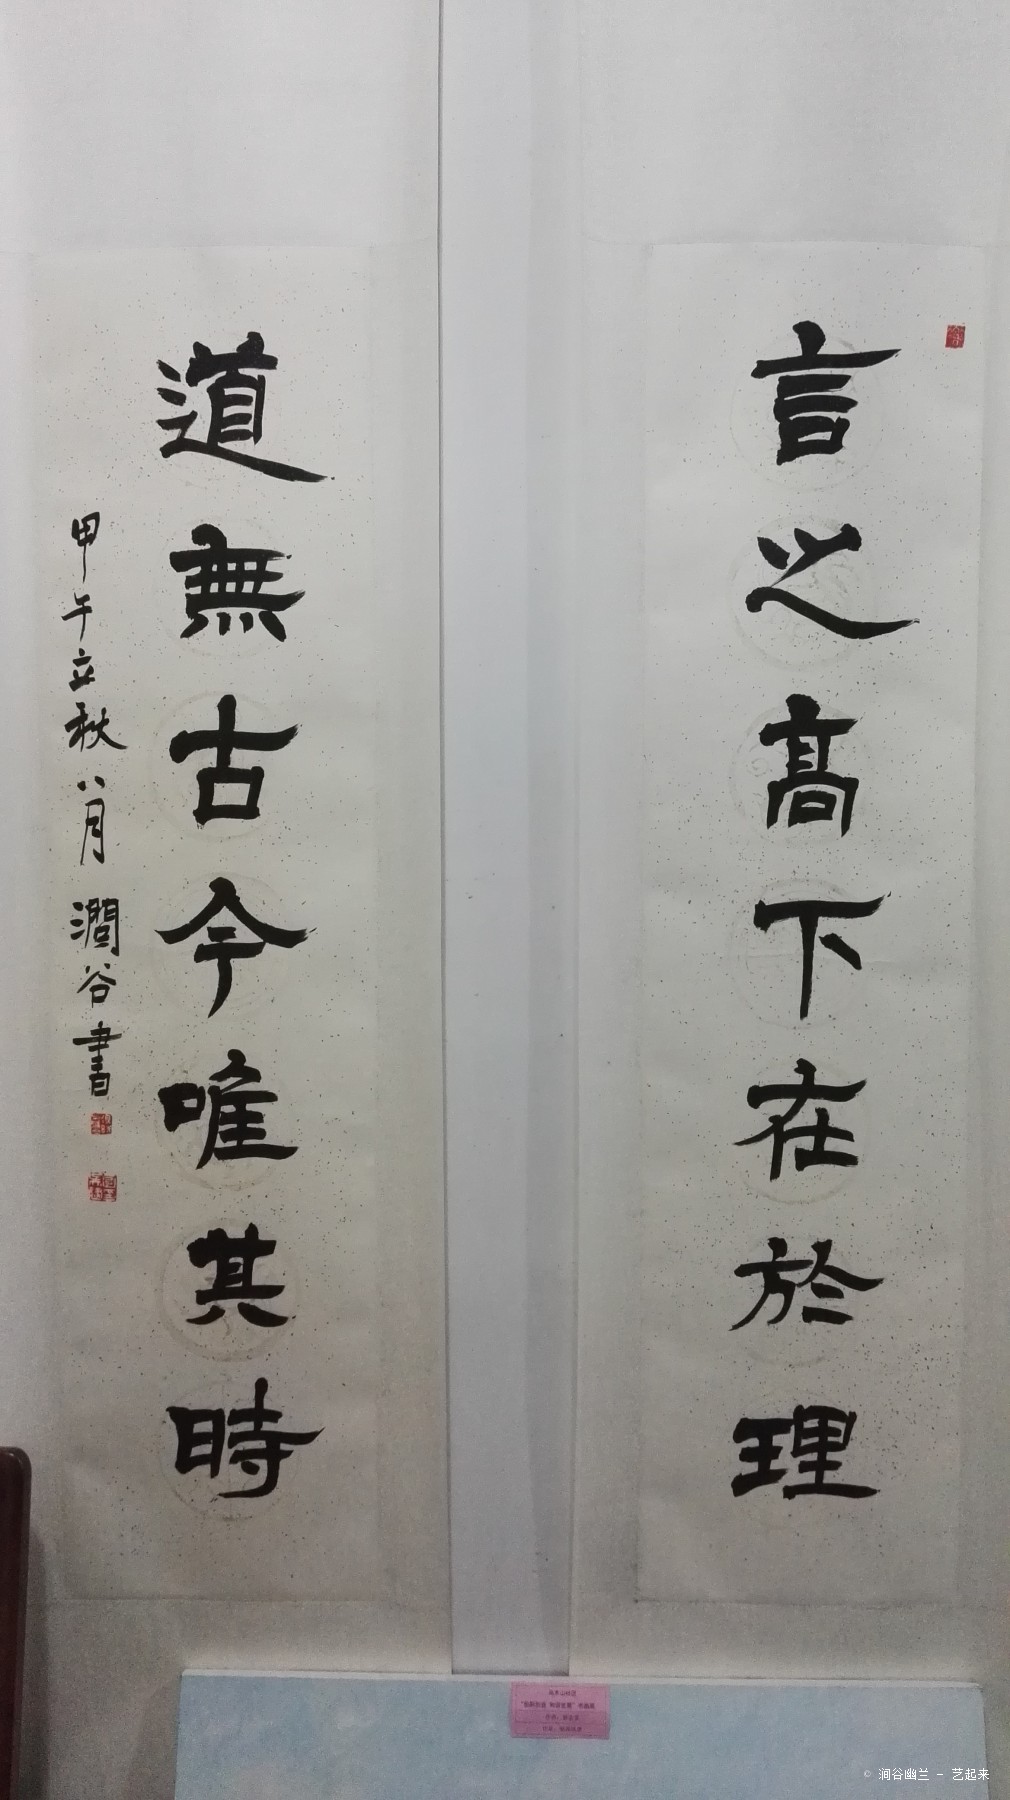 言之高下在於理
道無古今唯其時
甲午立秋八月 澗谷書
© 涧谷幽兰 - 艺起来